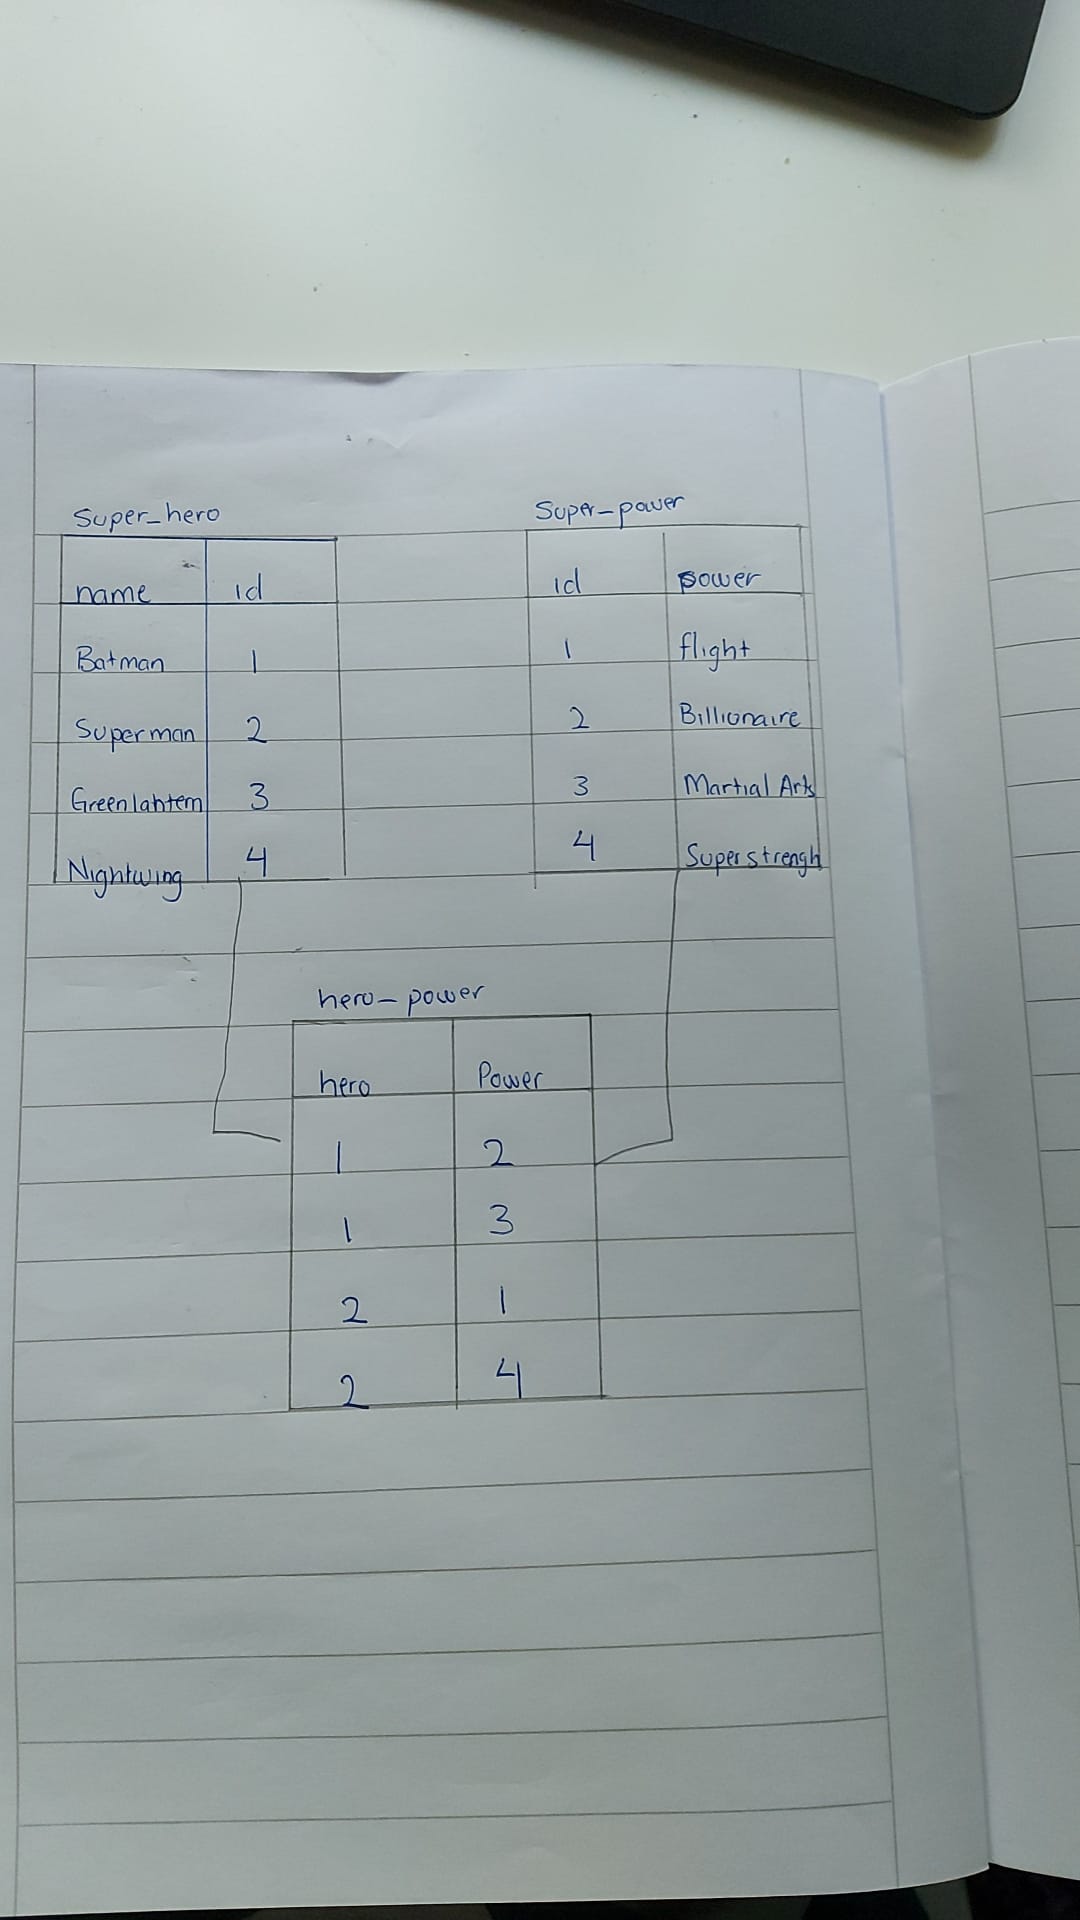 Super_hero
name id
Batman 1
Superman 2
Green lahtern 3
Nightwing 4
Super-power
id power
1 flight
2 Billionaire
3 Martial Arts
4 Super strengh
hero-power
hero Power
1 2
1 3
2 1
2 4